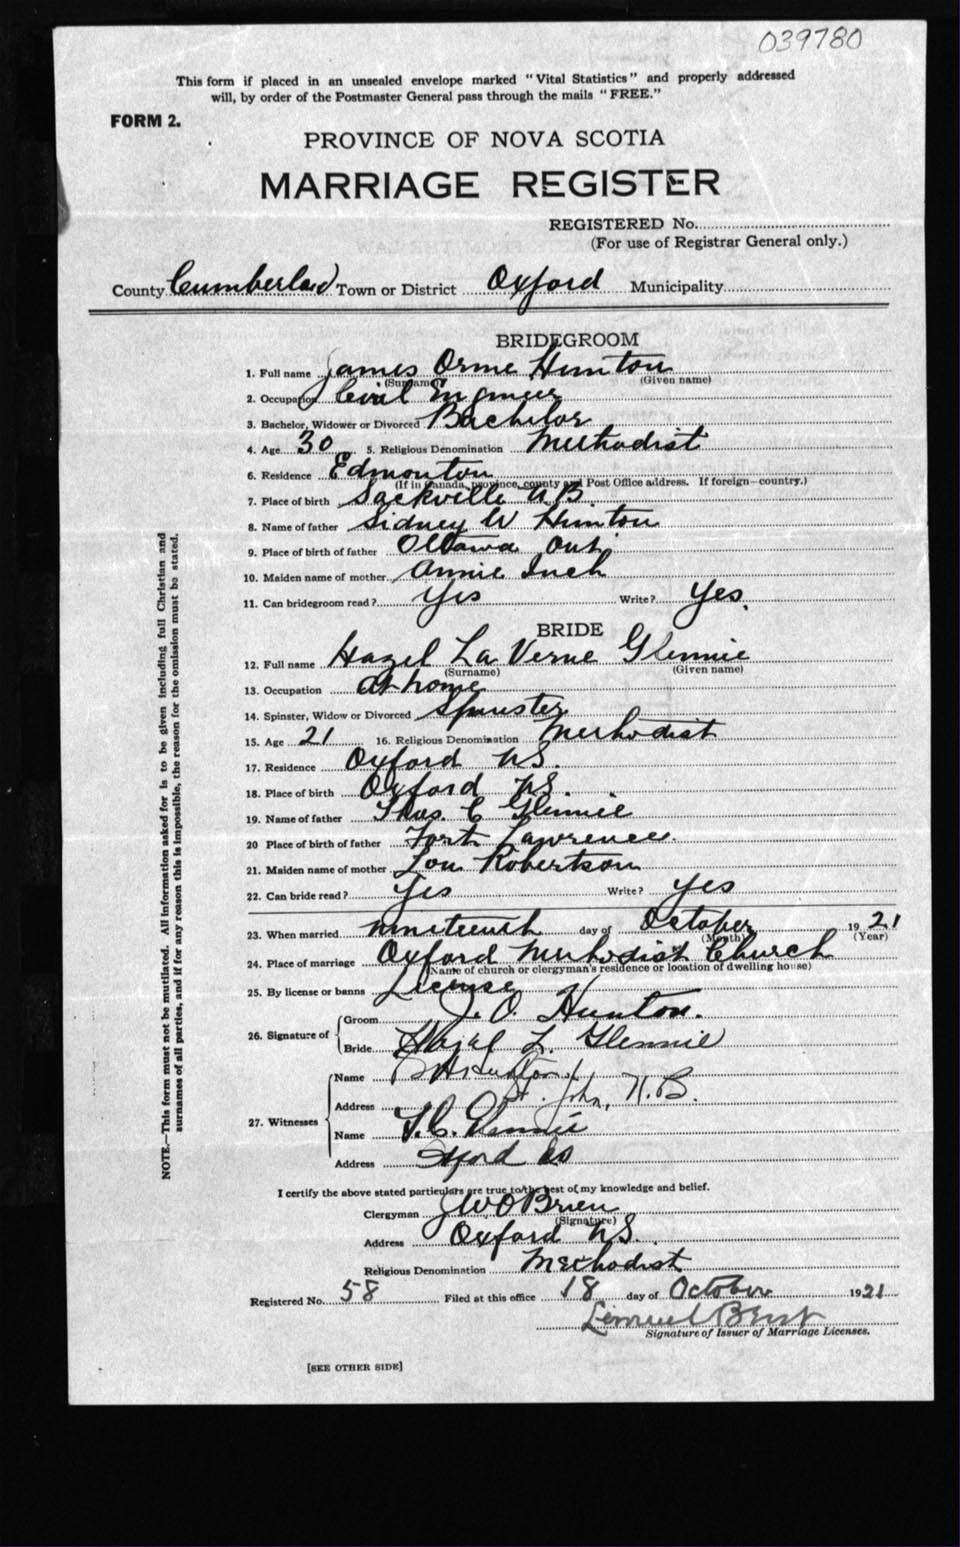 039780
This form if placed in an unsealed envelope marked "Vital Statistics" and properly addressed
will, by order of the Postmaster General pass through the mails "FREE."
FORM 2.
PROVINCE OF NOVA SCOTIA
MARRIAGE REGISTER
REGISTERED No.
(For use of Registrar General only.)
County Cumberland Town or District Oxford Municipality
BRIDEGROOM
1. Full name James Orme Hunton
(Surname) (Given name)
2. Occupation Civil Engineer
3. Bachelor, Widower or Divorced Bachelor
4. Age 30 5. Religious Denomination Methodist
6. Residence Edmonton
(If in Canada, province, county and Post Office address. If foreign—country.)
7. Place of birth Sackville N.B.
8. Name of father Sidney W Hunton
9. Place of birth of father Ottawa Ont.
10. Maiden name of mother Annie Inch
11. Can bridegroom read? Yes Write? Yes.
BRIDE
12. Full name Hazel La Verne Glennie
(Surname) (Given name)
13. Occupation at home
14. Spinster, Widow or Divorced Spinster
15. Age 21 16. Religious Denomination Methodist
17. Residence Oxford N.S.
18. Place of birth Oxford N.S.
19. Name of father Thos. C Glennie
20 Place of birth of father Fort Lawrence.
21. Maiden name of mother Lou Robertson
22. Can bride read? Yes Write? Yes
23. When married nineteenth day of October 1921
(Month) (Year)
24. Place of marriage Oxford Methodist Church
(Name of church or clergyman's residence or location of dwelling house)
25. By license or banns License
26. Signature of Groom J. O. Hunton.
Bride Hazel L. Glennie
27. Witnesses Name
Address St. John, N.B.
Name T. C. Glennie
Address Oxford
I certify the above stated particulars are true to the best of my knowledge and belief.
Clergyman J W O'Brien
(Signature)
Address Oxford N.S.
Religious Denomination Methodist
Registered No. 58 Filed at this office 18 day of October 1921
Lemuel Bent
Signature of Issuer of Marriage Licenses.
[SEE OTHER SIDE]
NOTE.—This form must not be mutilated. All information asked for is to be given including full Christian and
surnames of all parties, and if for any reason this is impossible, the reason for the omission must be stated.